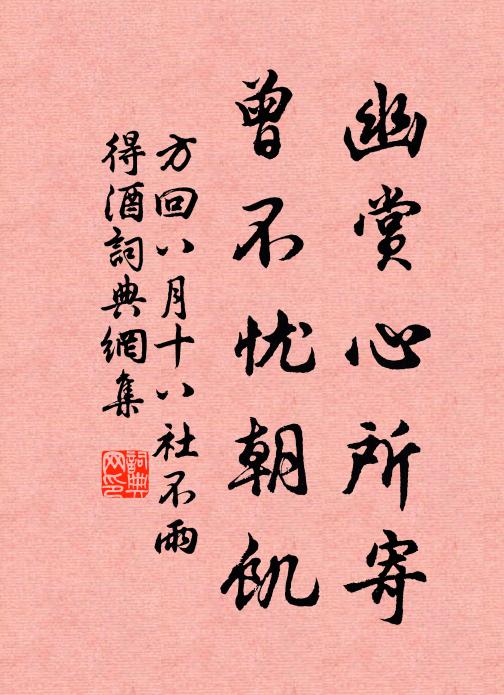 幽赏心所寄
曾不忧朝饥
方回八月十八社不雨
得酒詞典網集
詞典
网印